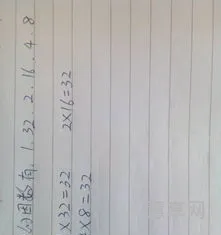 因数有、1、32、2、16、4、8
×32=32 2×16=32
×8=32